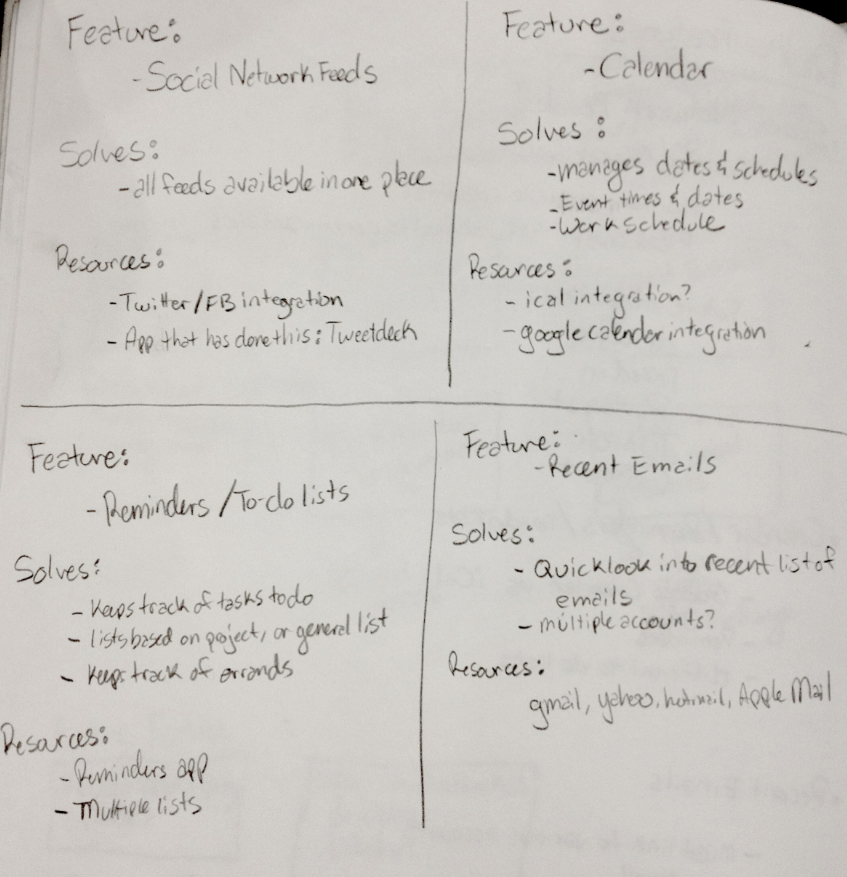 Feature:
- Social Network Feeds
Solves:
- all feeds available in one place
Resources:
- Twitter/FB integration
- App that has done this: Tweetdeck
Feature:
- Calendar
Solves:
- manages dates & schedules
- Event times & dates
- Work schedule
Resources:
- ical integration?
- google calender integration
Feature:
- Reminders / To-do lists
Solves:
- Keeps track of tasks to do
- lists based on project, or general list
- Keeps track of errands
Resources:
- Reminders app
- Multiple lists
Feature:
- Recent Emails
Solves:
- Quick look into recent list of
emails
- multiple accounts?
Resources:
gmail, yahoo, hotmail, Apple Mail